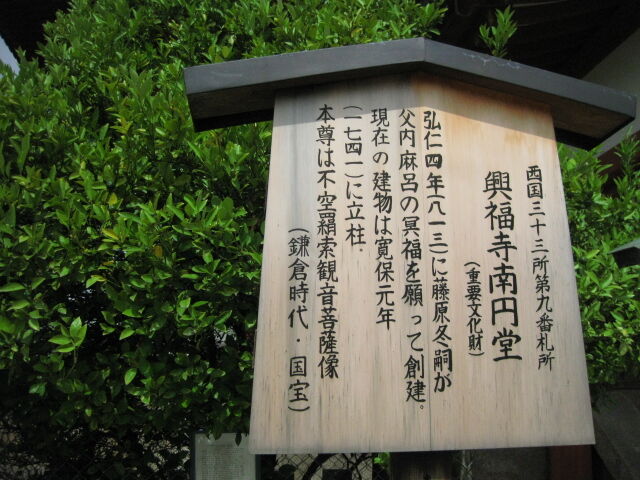 西国三十三所第九番札所
興福寺南円堂
(重要文化財)
弘仁四年(八一三)に藤原冬嗣が
父内麻呂の冥福を願って創建。
現在の建物は寛保元年
(一七四一)に立柱．
本尊は不空羂索観音菩薩像
(鎌倉時代．国宝)